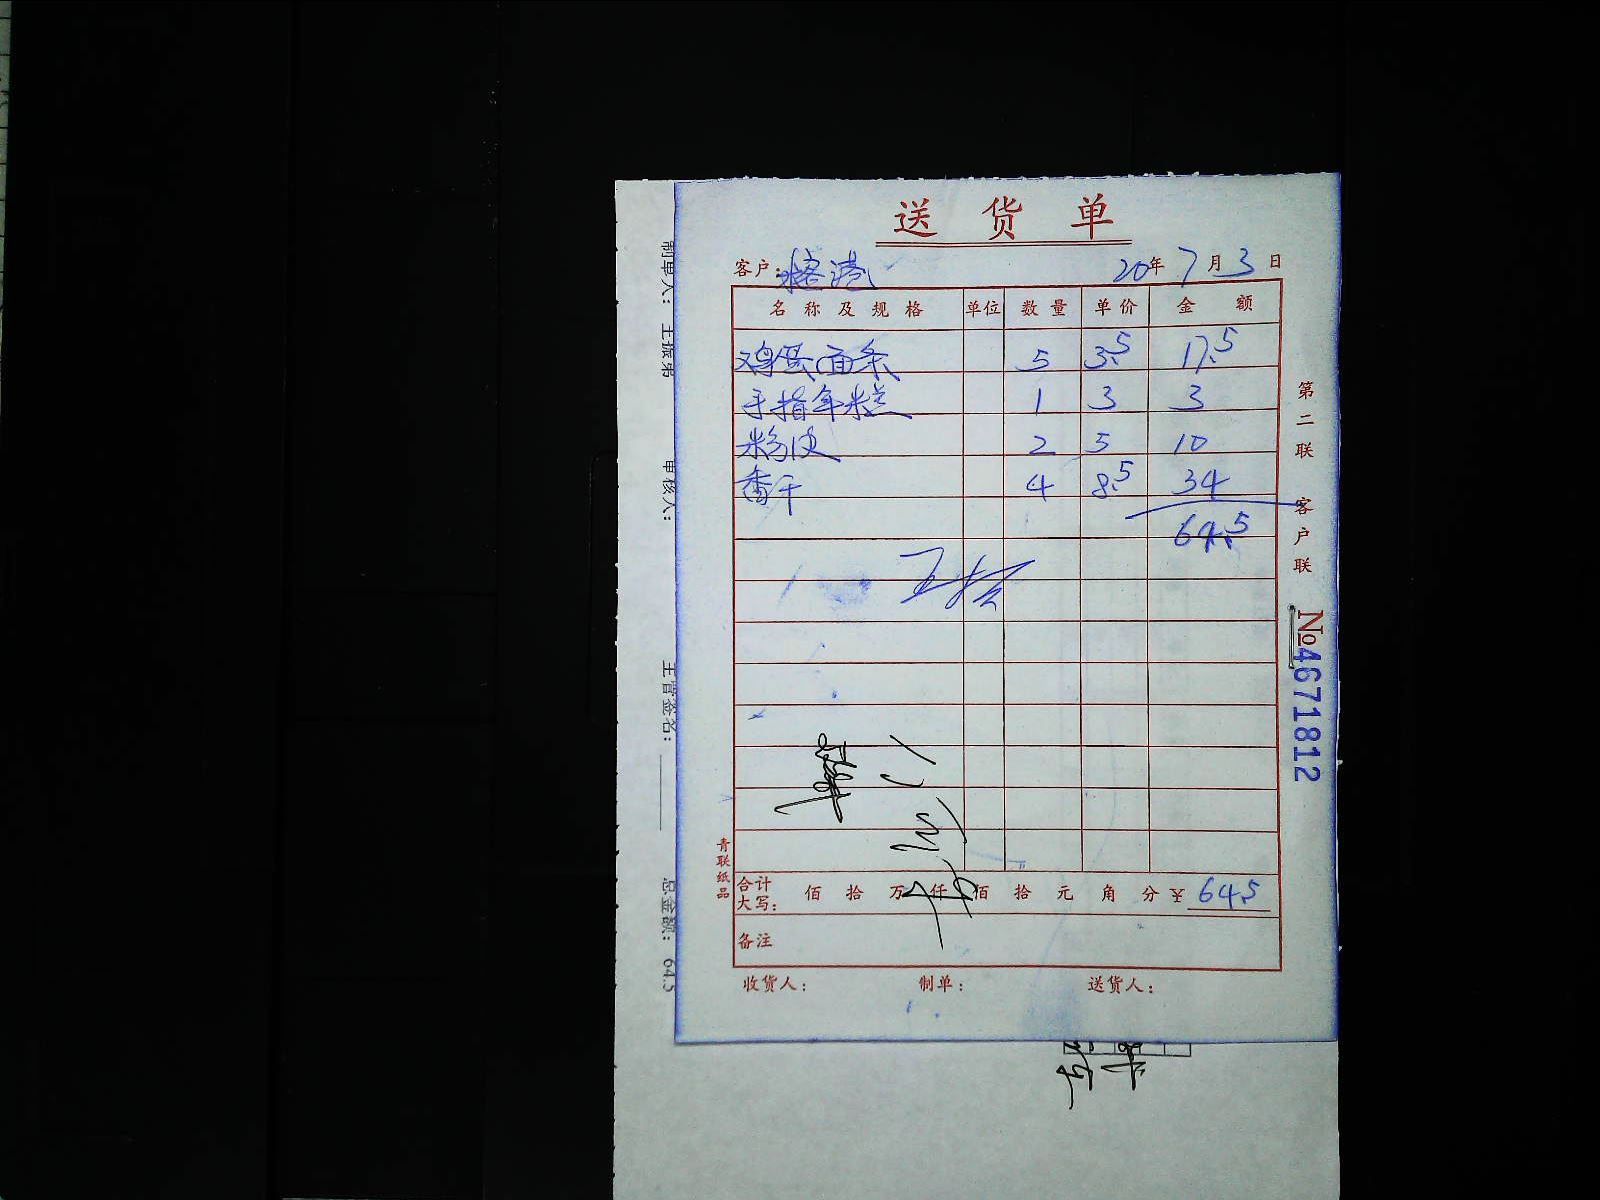 送货单
客户: 榕港 20年7月3日
名称及规格 单位 数量 单价 金额
鸡蛋面条 5 3.5 17.5
手指年糕 1 3 3
粉皮 2 5 10
番干 4 8.5 34
64.5
王振
合计大写: 佰 拾 万 仟 佰 拾 元 角 分 ¥ 64.5
备注
收货人: 制单: 送货人:
第二联 客户联
№4671812
青联纸品
制单人: 王振弟 审核人: 主管签名: 总金额: 64.5